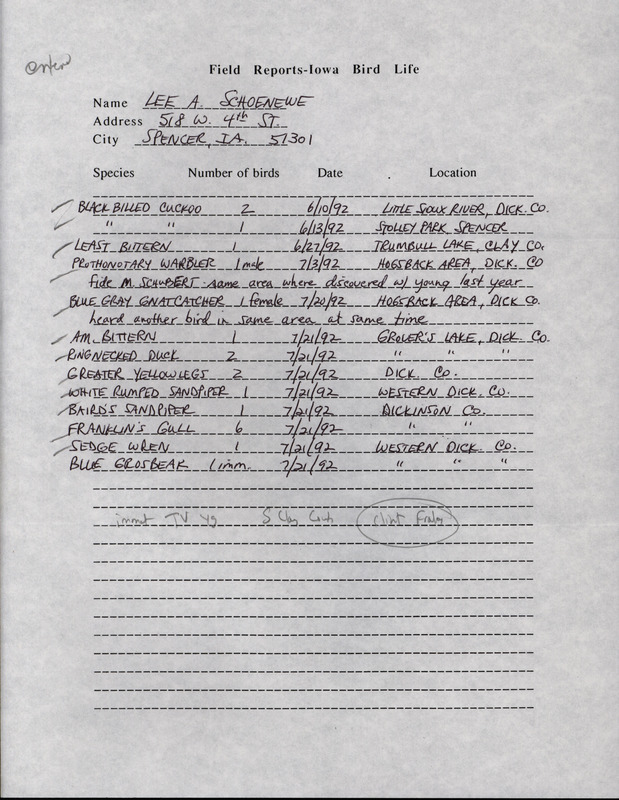 Field Reports-Iowa Bird Life
Name LEE A. SCHOENEWE
Address 518 W. 4th ST.
City SPENCER, IA. 51301
Species Number of birds Date Location
BLACK BILLED CUCKOO 2 6/10/92 LITTLE SIOUX RIVER, DICK. CO.
" " 1 6/13/92 STOLLEY PARK SPENCER
LEAST BITTERN 1 6/27/92 TRUMBULL LAKE, CLAY CO.
PROTHONOTARY WARBLER 1 male 7/3/92 HOGSBACK AREA, DICK. CO
fide M. SCHUBERT - same area where discovered w/ young last year
BLUE GRAY GNATCATCHER 1 female 7/20/92 HOGSBACK AREA, DICK CO.
heard another bird in same area at same time
AM. BITTERN 1 7/21/92 GROVER'S LAKE, DICK. CO.
RINGNECKED DUCK 2 7/21/92 " " "
GREATER YELLOWLEGS 2 7/21/92 DICK. CO.
WHITE RUMPED SANDPIPER 1 7/21/92 WESTERN DICK. CO.
BAIRD'S SANDPIPER 1 7/21/92 DICKINSON CO.
FRANKLIN'S GULL 6 7/21/92 " "
SEDGE WREN 1 7/21/92 WESTERN DICK. CO.
BLUE GROSBEAK 1 imm. 7/21/92 " " "
TV yg S Clay